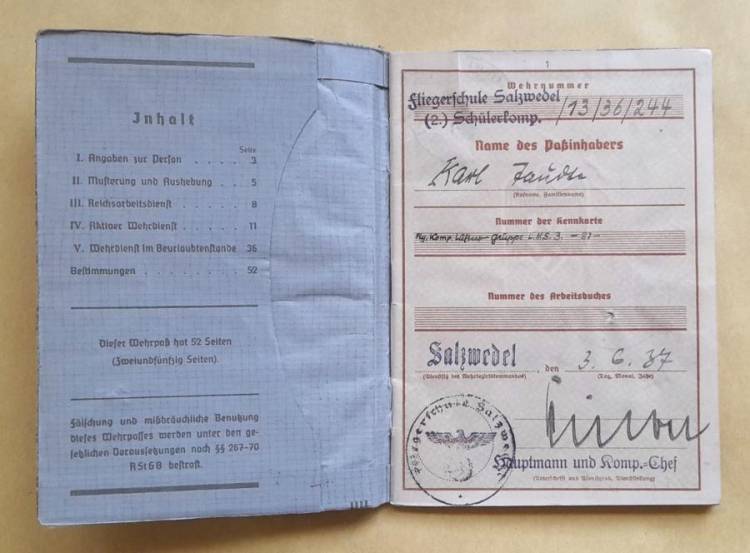 Inhalt
Seite
I. Angaben zur Person . . . . 3
II. Musterung und Aushebung . . 5
III. Reichsarbeitsdienst . . . . 8
IV. Aktiver Wehrdienst . . . . 11
V. Wehrdienst im Beurlaubtenstande 36
Bestimmungen . . . . . . . 52
Dieser Wehrpaß hat 52 Seiten
(Zweiundfünfzig Seiten).
Fälschung und mißbräuchliche Benutzung
dieses Wehrpasses werden unter den ge-
setzlichen Voraussetzungen nach §§ 267-70
RStGB bestraft.
1
Wehrnummer
Fliegerschule Salzwedel
(2.) Schülerkomp. /13/36/244
Name des Paßinhabers
Karl
(Rufname, Familienname)
Nummer der Kennkarte
Nummer des Arbeitsbuches
Salzwedel, den 3. 6. 37
(Dienstsitz des Wehrbezirkskommandos) (Tag, Monat, Jahr)
Fliegerschule Salzwedel
Hauptmann und Komp.-Chef